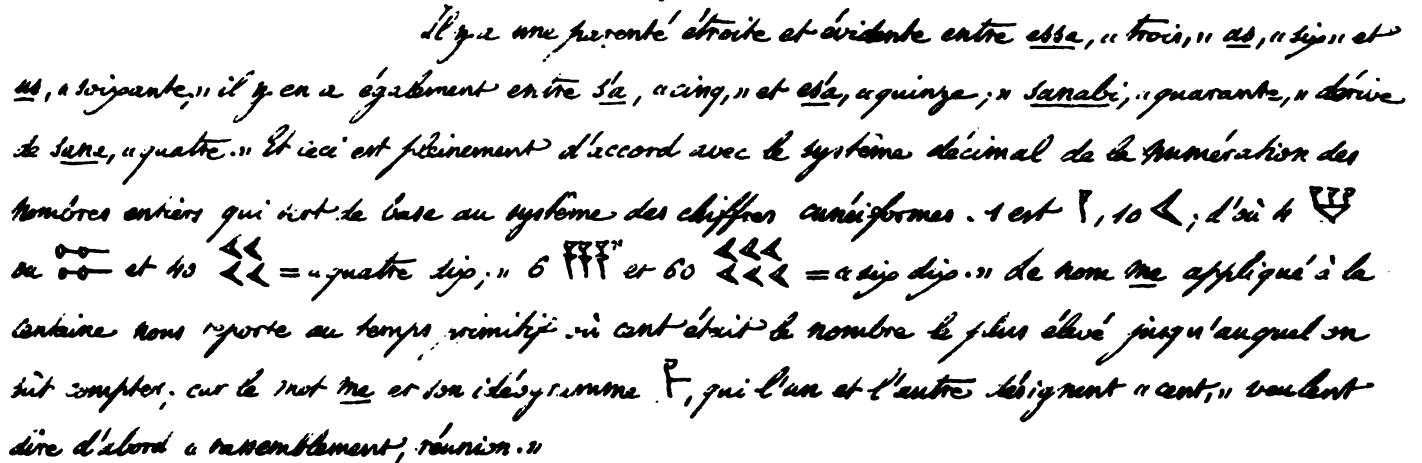 Il y a une parenté étroite et évidente entre essa, « trois, » as, « six » et
us, « soixante, » il y en a également entre s'a, « cinq, » et es'á, « quinze ; » sanabi, « quarante, » dérive
de sana, « quatre. » Et ceci est pleinement d'accord avec le système décimal de la numération des
nombres entiers qui sert de base au système des chiffres cunéiformes. 1 est 𒁹, 10 𒌋 ; d'où 4 𒐼
ou et 40 𒐏 = « quatre dix ; » 6 𒐋 et 60 = « six dix. » Le nom me appliqué à la
centaine nous reporte au temps primitif où cent était le nombre le plus élevé jusqu'auquel on
sût compter ; car le mot me et son idéogramme 𒈨, qui l'un et l'autre désignent « cent, » veulent
dire d'abord « rassemblement, réunion. »